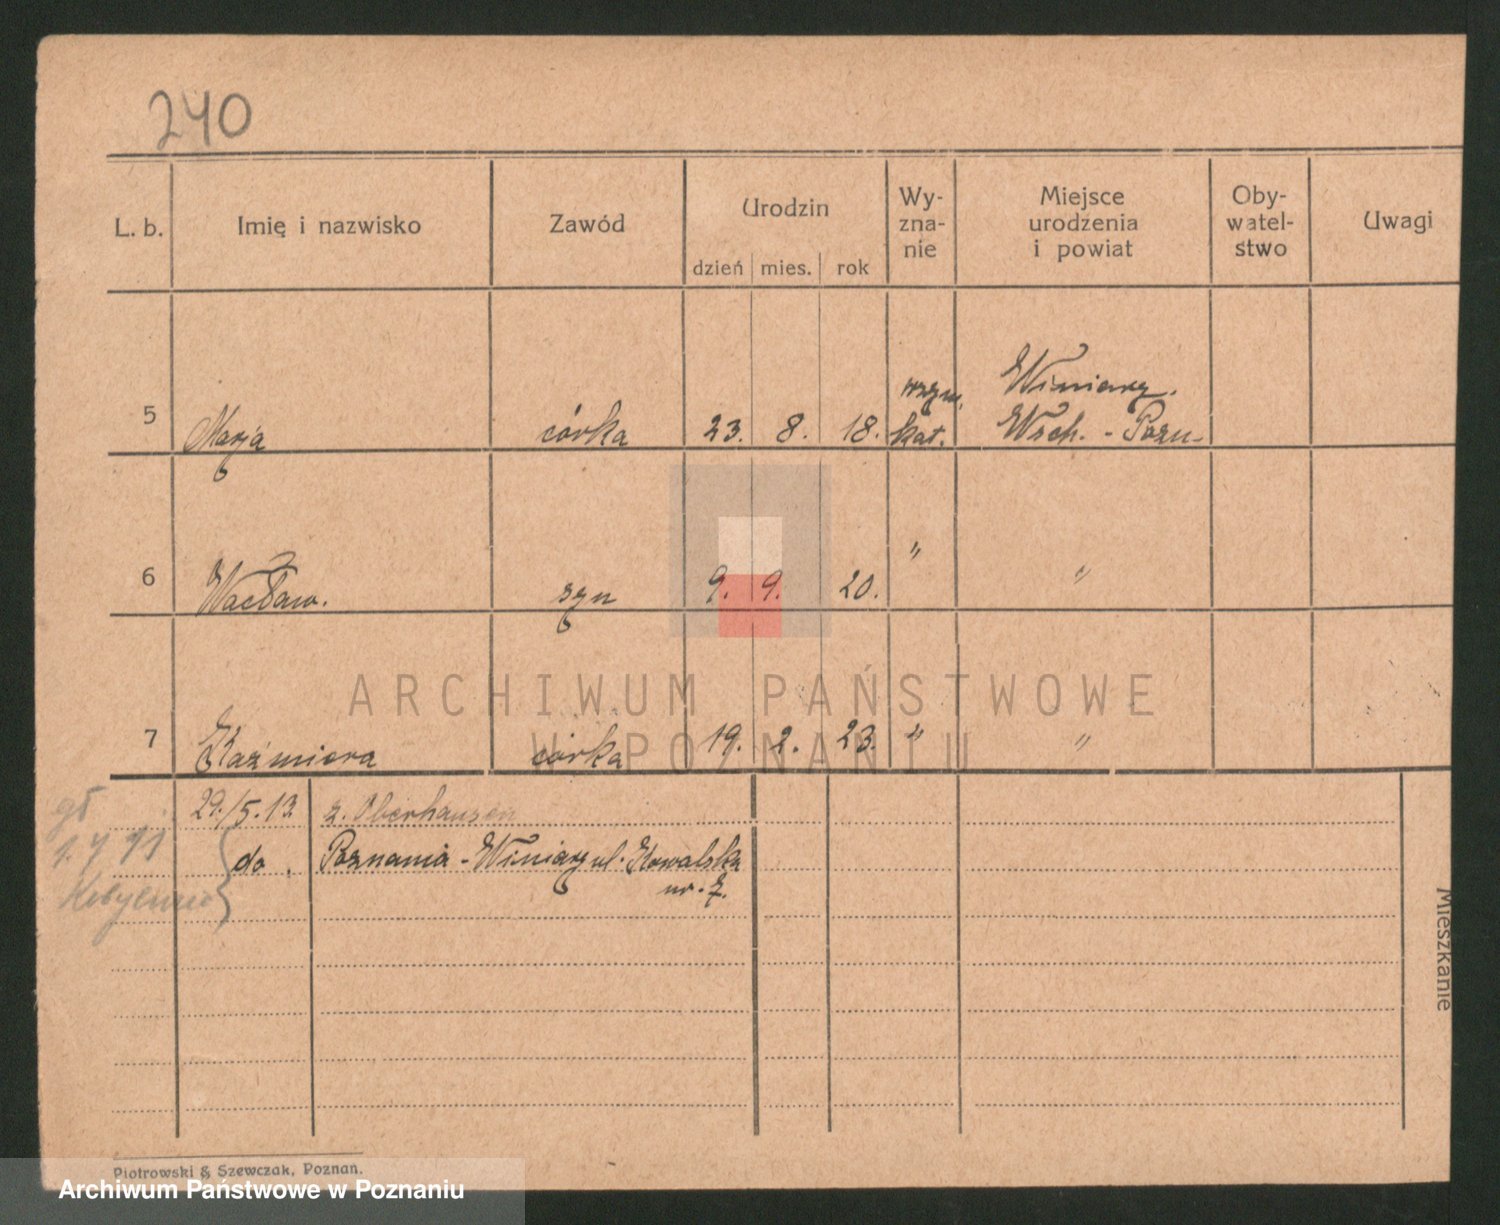 240
L. b. Imię i nazwisko Zawód Urodzin dzień mies. rok Wy-zna-nie Miejsce urodzenia i powiat Oby-watel-stwo Uwagi
rzym. Winiary.
5 Marja córka 23. 8. 18. kat. Wsch. - Pozn-
6 Wacław. syn 9. 9. 20. " "
ARCHIWUM PAŃSTWOWE
W POZNANIU
7 Kaźmiera córka 19. 2. 23. " "
29./5. 13. z. Oberhausen
do Poznania - Winiary ul. Kowalska
nr.
Mieszkanie
Piotrowski & Szewczak, Poznań.
Archiwum Państwowe w Poznaniu